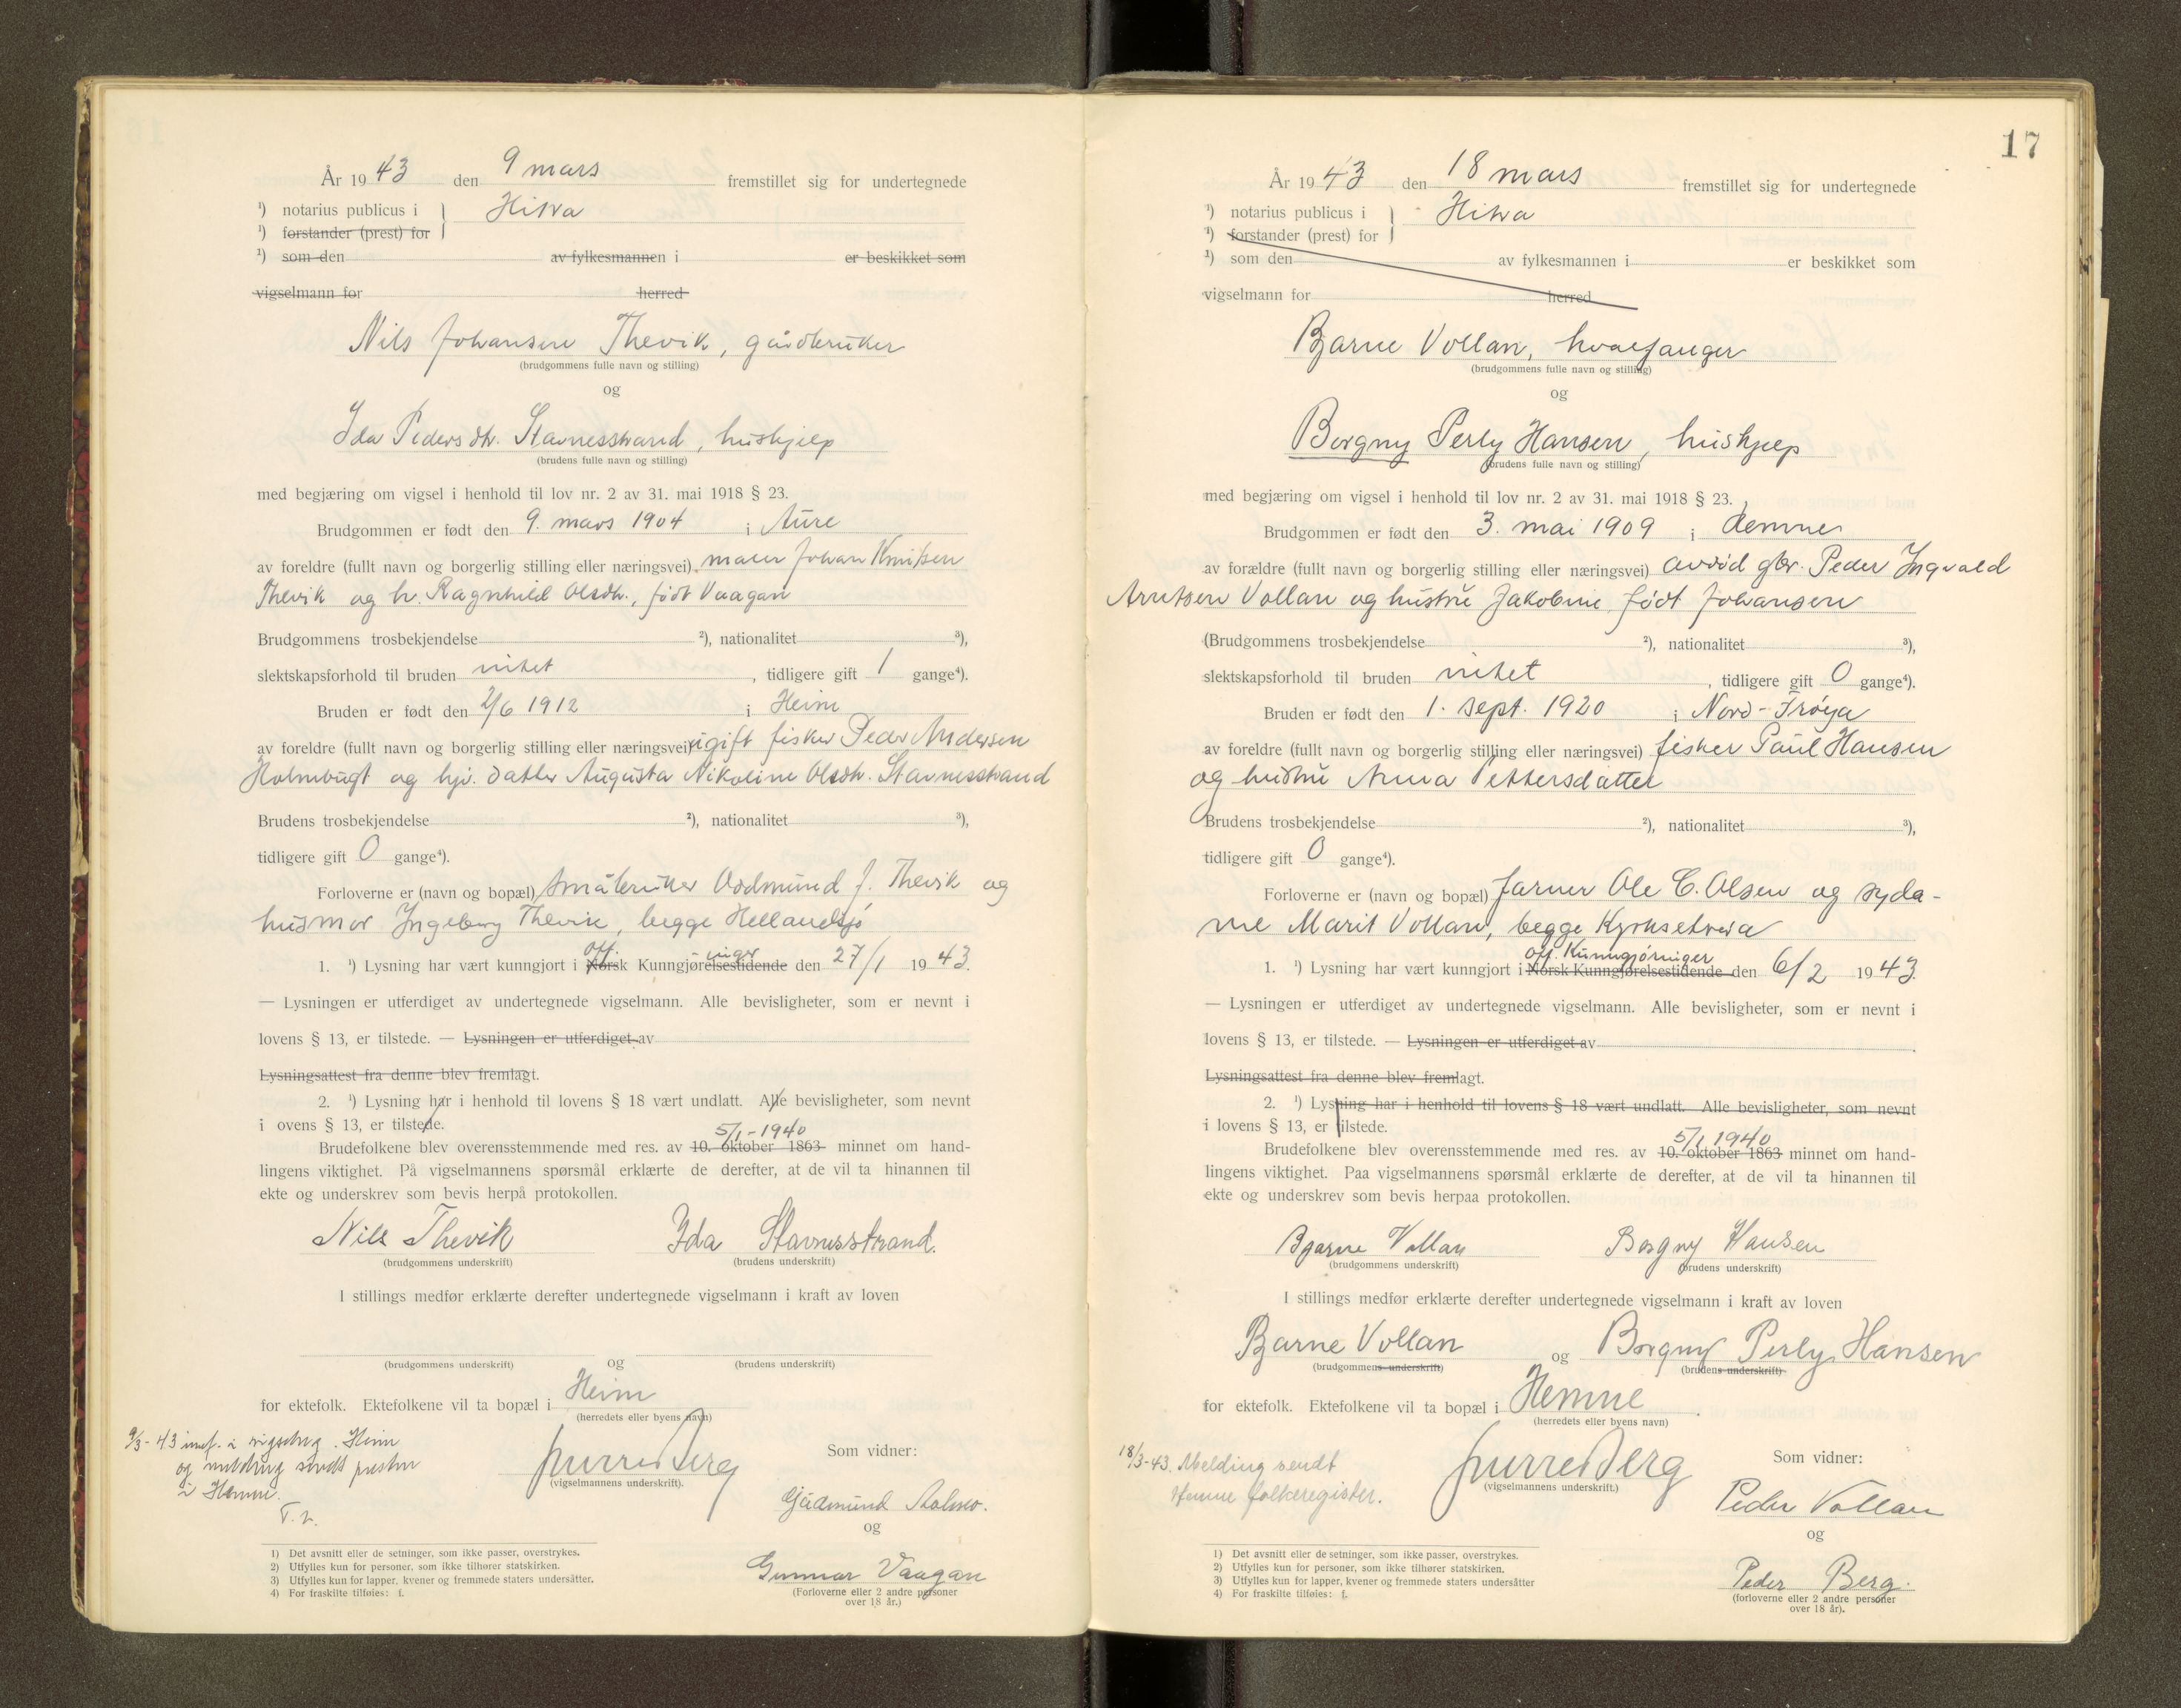 År 19 43 den 9 mars fremstillet sig for undertegnede
¹) notarius publicus i } Hitra
¹) forstander (prest) for
¹) som den av fylkesmannen i er beskikket som
vigselmann for herred
Nils Johansen Thevik, gårdbruker
(brudgommens fulle navn og stilling)
og
Ida Pedersdtr. Stavnesstrand, hushjelp
(brudens fulle navn og stilling)
med begjæring om vigsel i henhold til lov nr. 2 av 31. mai 1918 § 23.
Brudgommen er født den 9. mars 1904 i Aure
av foreldre (fullt navn og borgerlig stilling eller næringsvei) maler Johan Knutsen
Thevik og h. Ragnhild Olsdtr., født Vaagan
Brudgommens trosbekjendelse ²), nationalitet ³),
slektskapsforhold til bruden intet, tidligere gift 1 gange⁴).
Bruden er født den 2/6 1912 i Heim
av foreldre (fullt navn og borgerlig stilling eller næringsvei) ugift fisker Peder Andersen
Holmbugt og hjv. datter Augusta Nikoline Olsdtr. Stavnesstrand
Brudens trosbekjendelse ²), nationalitet ³),
tidligere gift 0 gange⁴).
Forloverne er (navn og bopæl) småbruker Oddmund J. Thevik og
husmor Ingeborg Thevik, begge Hellandsjø
off. inger
1. ¹) Lysning har vært kunngjort i Norsk Kunngjørelsestidende den 27/1 19 43.
— Lysningen er utferdiget av undertegnede vigselmann. Alle bevisligheter, som er nevnt i
lovens § 13, er tilstede. — Lysningen er utferdiget av
Lysningsattest fra denne blev fremlagt.
2. ¹) Lysning har i henhold til lovens § 18 vært undlatt. Alle bevisligheter, som nevnt
i ovens § 13, er tilstede.
5/1 - 1940
Brudefolkene blev overensstemmende med res. av 10. oktober 1863 minnet om hand-
lingens viktighet. På vigselmannens spørsmål erklærte de derefter, at de vil ta hinannen til
ekte og underskrev som bevis herpå protokollen.
Nils Thevik Ida Stavnesstrand.
(brudgommens underskrift) (brudens underskrift)
I stillings medfør erklærte derefter undertegnede vigselmann i kraft av loven
og
(brudgommens underskrift) (brudens underskrift)
for ektefolk. Ektefolkene vil ta bopæl i Heim
(herredets eller byens navn)
9/3 - 43 innf. i vigselreg. Heim
og melding sendt presten
i Hemne.
Som vidner:
(vigselmannens underskrift).
Gudmund
og
Gunnar Vaagan
(Forloverne eller 2 andre personer
over 18 år.)
1) Det avsnitt eller de setninger, som ikke passer, overstrykes.
2) Utfylles kun for personer, som ikke tilhører statskirken.
3) Utfylles kun for lapper, kvener og fremmede staters undersåtter.
4) For fraskilte tilføies: f.
17
År 19 43 den 18 mars fremstillet sig for undertegnede
¹) notarius publicus i } Hitra
¹) forstander (prest) for
¹) som den av fylkesmannen i er beskikket som
vigselmann for herred
Bjarne Vollan, hvalfanger
(brudgommens fulle navn og stilling)
og
Borgny Perly Hansen, hushjelp
(brudens fulle navn og stilling)
med begjæring om vigsel i henhold til lov nr. 2 av 31. mai 1918 § 23.
Brudgommen er født den 3. mai 1909 i Hemne
av forældre (fullt navn og borgerlig stilling eller næringsvei) avdød gbr. Peder Ingvald
Arntsen Vollan og hustru Jakobine født Johansen
(Brudgommens trosbekjendelse ²), nationalitet ³),
slektskapsforhold til bruden intet, tidligere gift 0 gange⁴).
Bruden er født den 1. sept. 1920 i Nord-Frøya
av foreldre (fullt navn og borgerlig stilling eller næringsvei) fisker Paul Hansen
og hustru Anna Pettersdatter
Brudens trosbekjendelse ²), nationalitet ³),
tidligere gift 0 gange⁴).
Forloverne er (navn og bopæl) farver Ole C. Olsen og syda-
me Marit Vollan, begge Kyrksetrøra
off. Kunngjøringer
1. ¹) Lysning har vært kunngjort i Norsk Kunngjørelsestidende den 6/2 19 43.
— Lysningen er utferdiget av undertegnede vigselmann. Alle bevisligheter, som er nevnt i
lovens § 13, er tilstede. — Lysningen er utferdiget av
Lysningsattest fra denne blev fremlagt.
2. ¹) Lysning har i henhold til lovens § 18 vært undlatt. Alle bevisligheter, som nevnt
i lovens § 13, er tilstede.
5/1 1940
Brudefolkene blev overensstemmende med res. av 10. oktober 1863 minnet om hand-
lingens viktighet. Paa vigselmannens spørsmål erklærte de derefter, at de vil ta hinannen til
ekte og underskrev som bevis herpaa protokollen.
Bjarne Vollan Borgny Hansen
(brudgommens underskrift) (brudens underskrift)
I stillings medfør erklærte derefter undertegnede vigselmann i kraft av loven
Bjarne Vollan og Borgny Perly Hansen
(brudgommens underskrift) (brudens underskrift)
for ektefolk. Ektefolkene vil ta bopæl i Hemne.
(herredets eller byens navn)
18/3-43. Melding sendt
Hemne folkeregister.
Som vidner:
(vigselmannens underskrift.)
Peder Vollan
og
Peder Berg.
(forloverne eller 2 andre personer
over 18 år).
1) Det avsnitt eller de setninger, som ikke passer, overstrykes.
2) Utfylles kun for personer, som ikke tilhører statskirken.
3) Utfylles kun for lapper, kvener og fremmede staters undersåtter
4) For fraskilte tilføies: f.